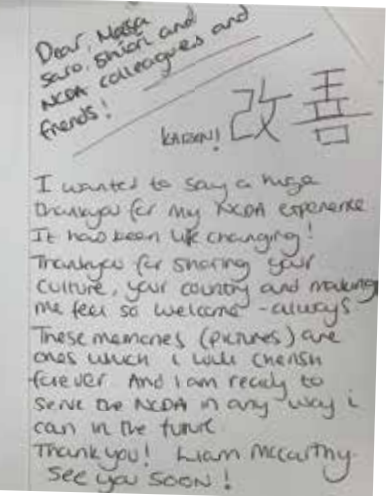 Dear, Masa
Saro, Shiori and
NCDA colleagues and
friends!
KAIZEN! 改善
I wanted to say a huge
thankyou for my NCDA experience
It has been life changing!
Thankyou for sharing your
culture, your country and making
me feel so welcome - always
These memories (pictures) are
ones which i will cherish
forever. And I am ready to
serve the NCDA in any way i
can in the future.
Thank you! Liam McCarthy.
See you SOON!